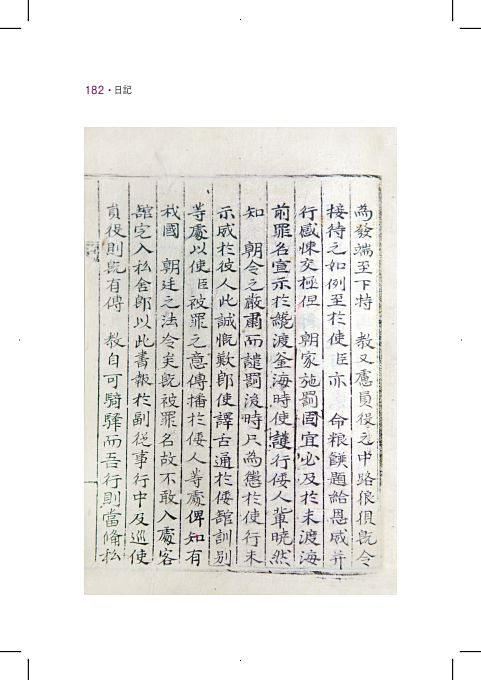 182・日記
為發端至下特　教又慮員役之中路狼狽旣令
接待之如例至於使臣亦　命粮饌題給恩威幷
行感悚交極但　朝家施罰固宜必及於未渡海
前罪名宣示於纔渡釜海時使護行倭人輩曉然
知　朝令之嚴肅而譴罰後時只為懲於使行未
示威於彼人此誠慨歎郞使譯舌通於倭舘訓別
等處以使臣被罪之意傳播於倭人等處俾知有
我國　朝廷之法令矣旣被罪名故不敢入處客
舘宅入私舍郞以此書報於副從事行中及巡使
員役則旣有傳　敎自可騎驛而吾行則當備私